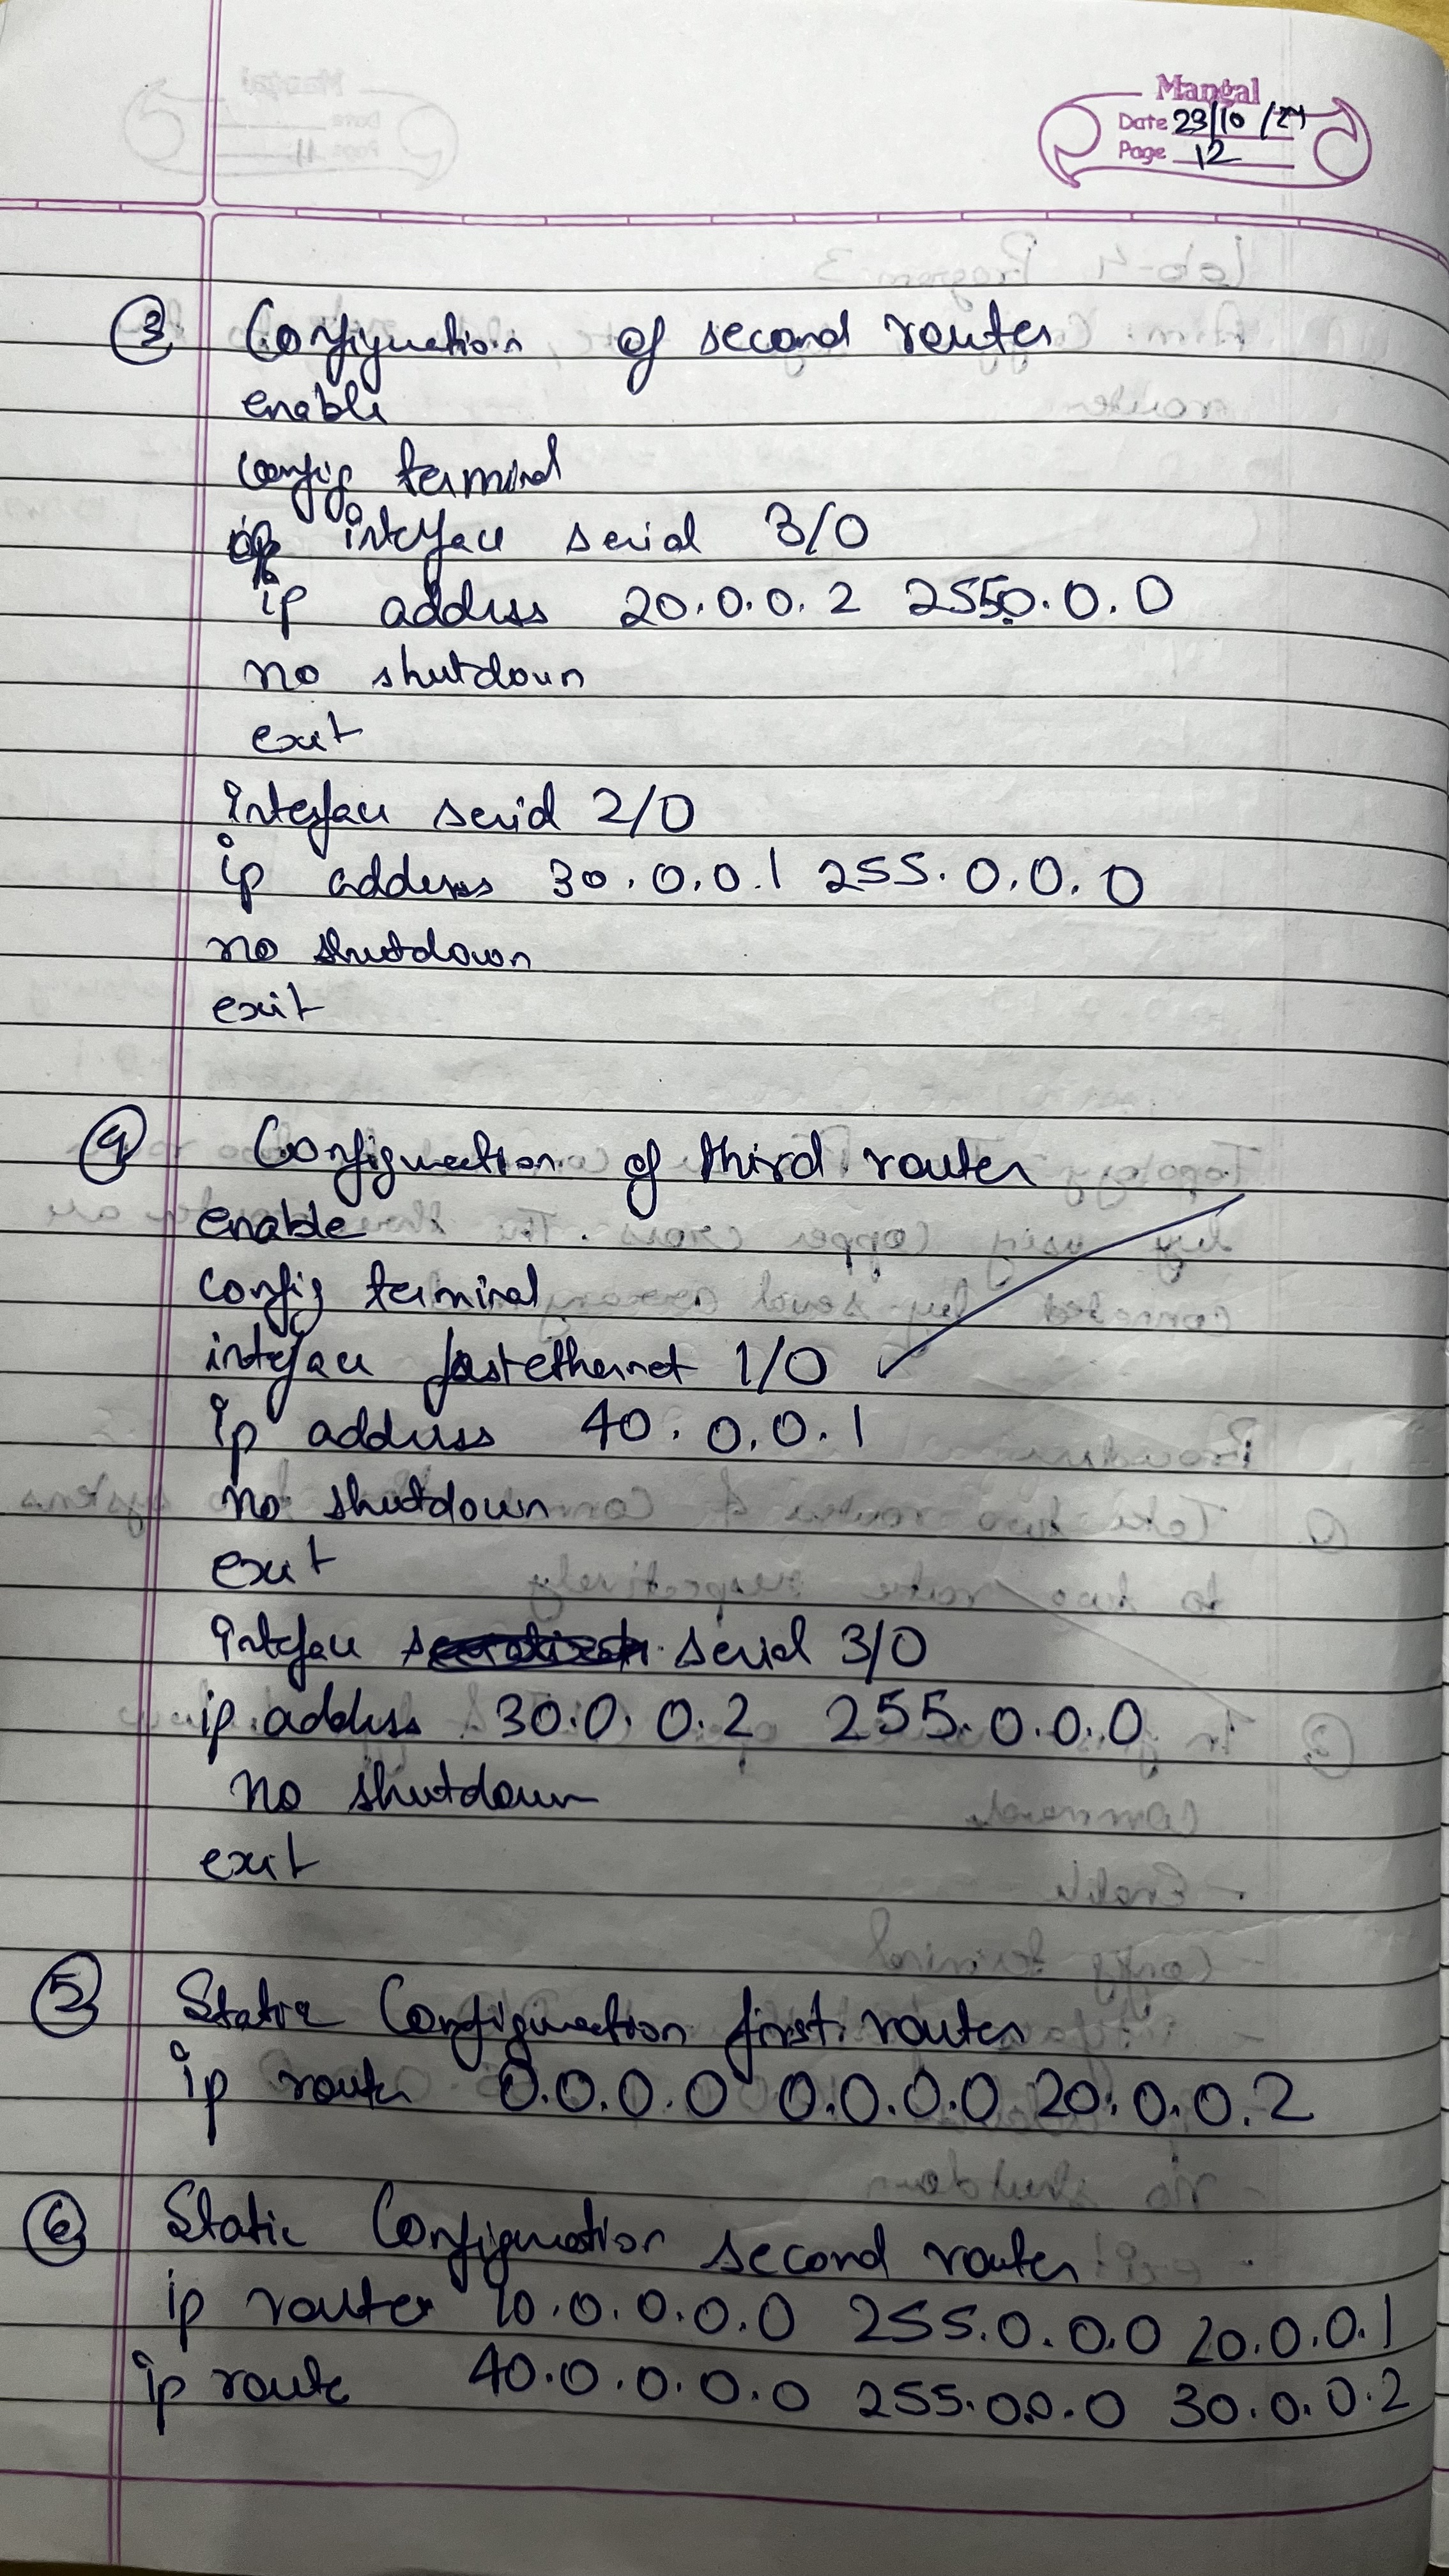 Mangal
Date 23/10/24
Page 12
③ Configuration of second router
enable
config terminal
interface serial 3/0
ip address 20.0.0.2 2550.0.0
no shutdown
exit
interface serial 2/0
ip address 30.0.0.1 255.0.0.0
no shutdown
exit
④ Configuration of third router
enable
config terminal
interface fastethernet 1/0
ip address 40.0.0.1
no shutdown
exit
interface serial 3/0
ip address 30.0.0.2 255.0.0.0
no shutdown
exit
⑤ Static Configuration first router
ip router 0.0.0.0 0.0.0.0 20.0.0.2
⑥ Static Configuration second router
ip router 10.0.0.0.0 255.0.0.0 20.0.0.1
ip route 40.0.0.0.0 255.0.0.0 30.0.0.2